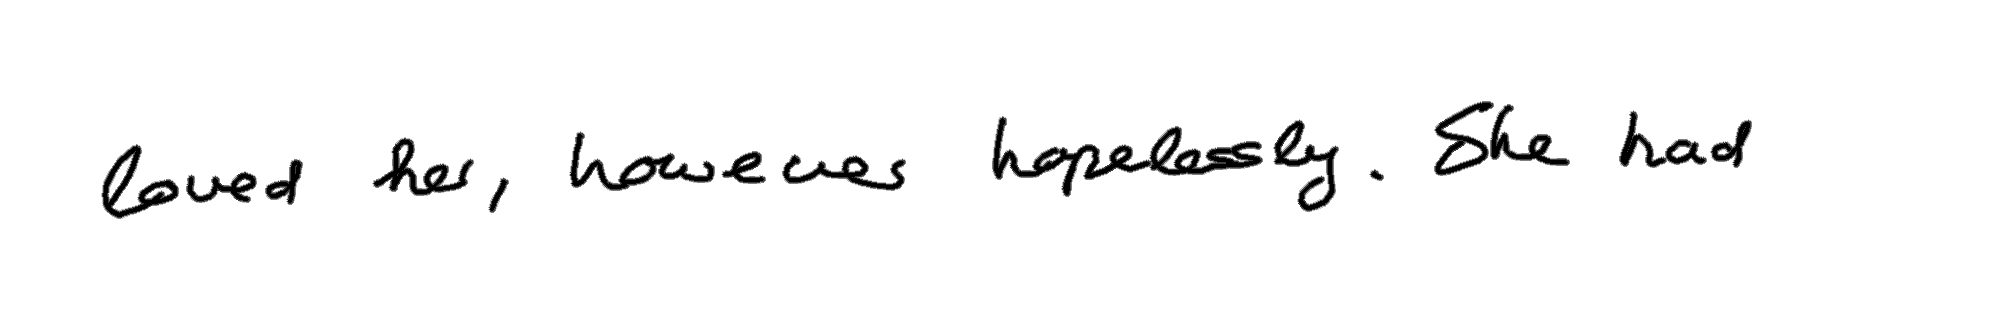 loved her, however hopelessly. She had